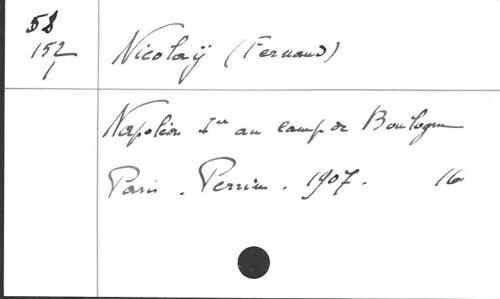 58
152
1
Nicolaÿ (Fernand)
Napoléon Ier au camp de Boulogne
Paris. Perrin. 1907. 16